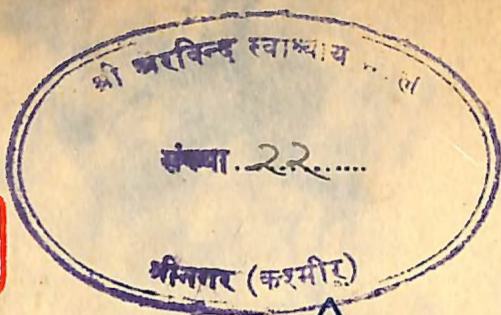 श्री अरविन्द स्वाध्याय
संख्या .२२.....
श्रीनगर (कश्मीर)